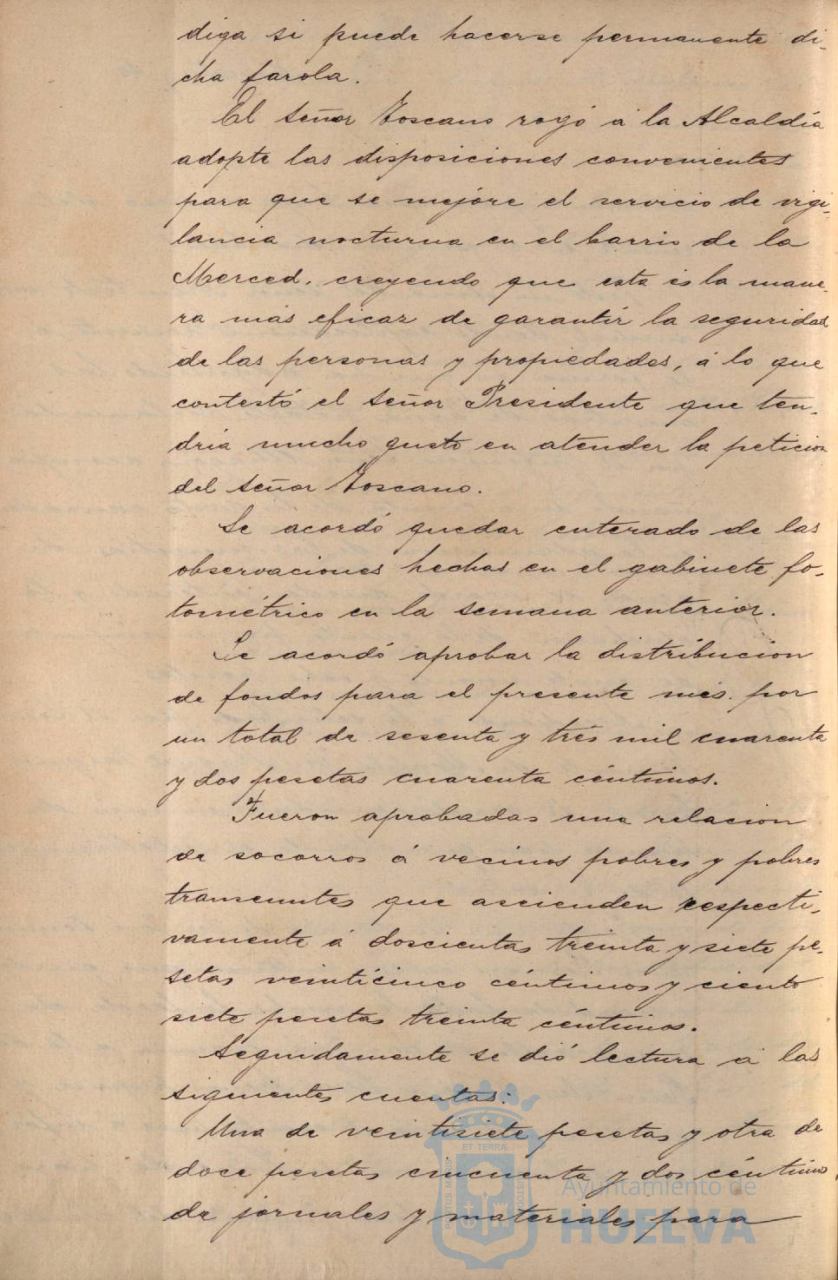 diga si puede hacerse permanente di-
cha farola.
El señor Toscano rogó á la Alcaldía
adopte las disposiciones convenientes
para que se mejore el servicio de vigi-
lancia nocturna en el barrio de la
Merced, creyendo que esta és la mane-
ra más eficaz de garantir la seguridad
de las personas y propiedades, á lo que
contestó el señor Presidente que ten-
dria mucho gusto en atender la peticion
del señor Toscano.
Se acordó quedar enterado de las
observaciones hechas en el gabinete fo-
tométrico en la semana anterior.
Se acordó aprobar la distribucion
de fondos para el presente més por
un total de sesenta y trés mil cuarenta
y dos pesetas cuarenta céntimos.
Fueron aprobadas una relacion
de socorros á vecinos pobres y pobres
transeuntes que ascienden respecti-
vamente á doscientas treinta y siete pe-
setas veinticinco céntimos y ciento
siete pesetas treinta céntimos.
Seguidamente se dió lectura á las
siguientes cuentas:
Una de veintisiete pesetas y otra de
doce pesetas cincuenta y dos céntimos
de jornales y materiales para
ET TERRÆ
Ayuntamiento de
HUELVA